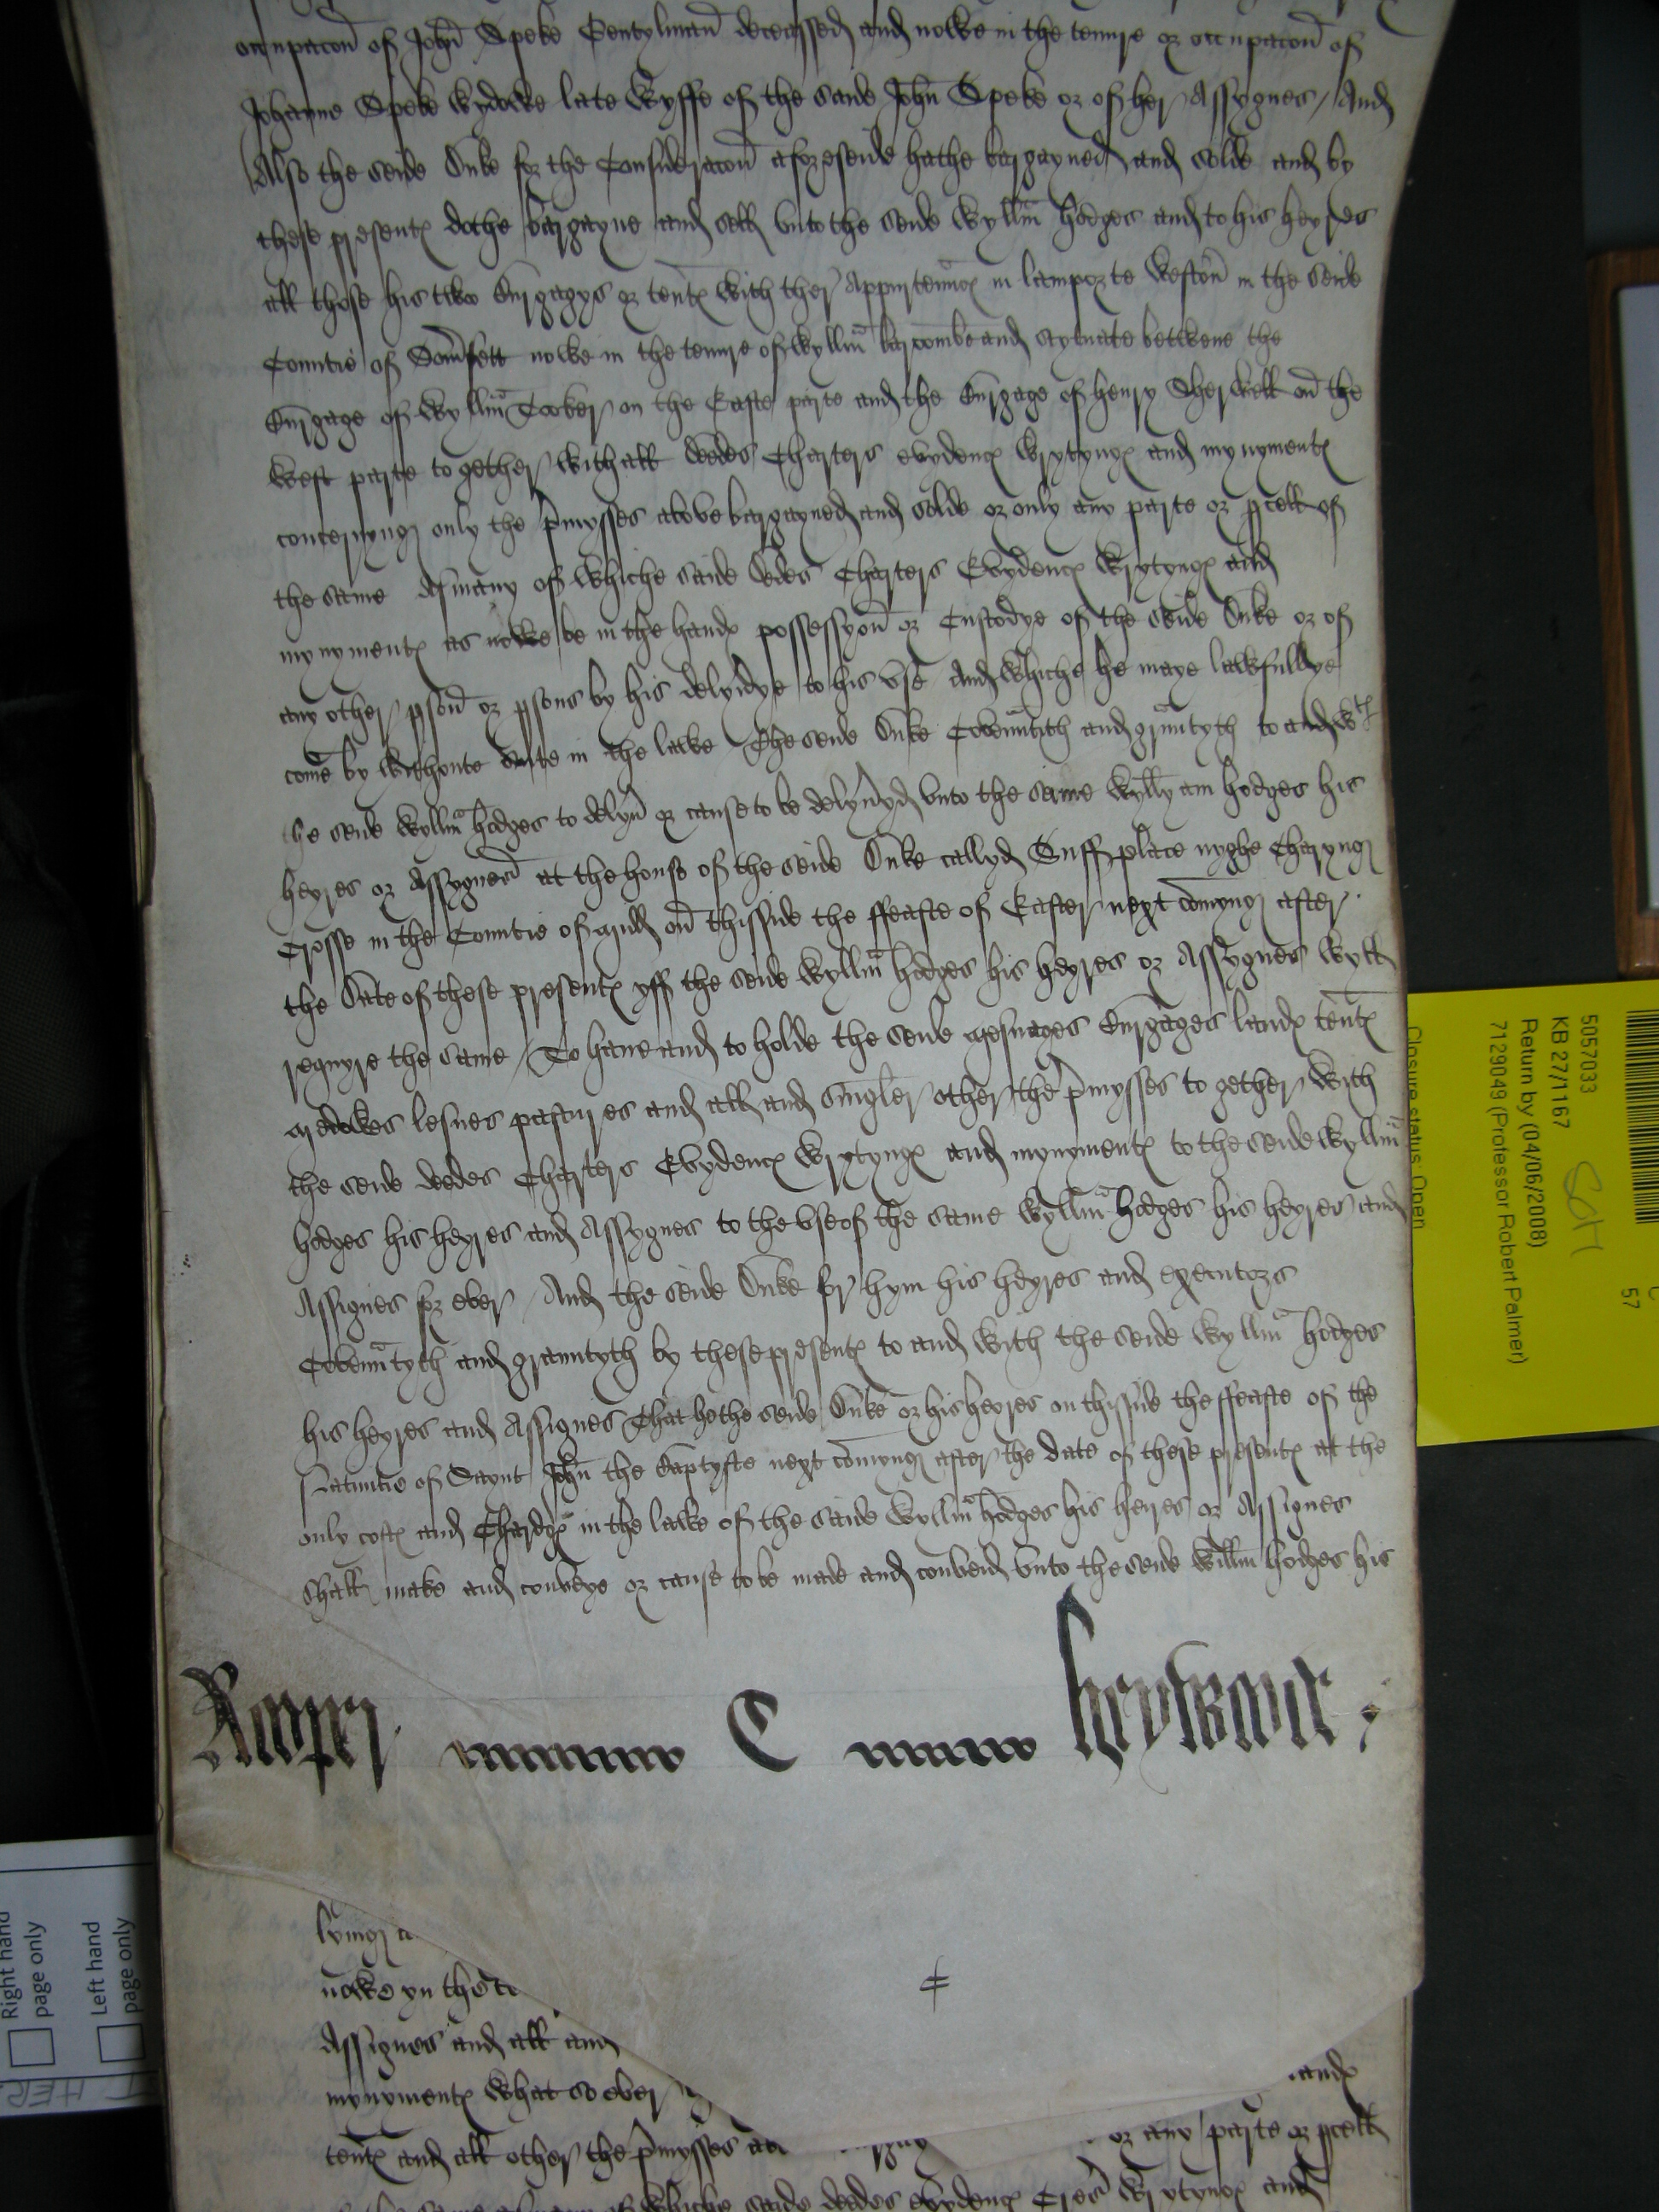 occupacon of John Speke Gentylman decessed and nowe in the tenure or occupacon of
Johanne Speke wydowe late wyffe of the saide John Speke or of her Assygnes / And
Also the seide Duke for the Consideracon aforeseide hathe bargayned and solde and by
these presentes dothe bargayne and sell unto the seide Wyllm Hodges and to his heyres
all those his two Burgagys or tentes with ther Appurtennces in lamporte Weston in the seide
Countie of Somsett nowe in the tenure of Wyllm and sytuate betwene the
Burgage of Wyllm Tooker on the Easte parte and the Burgage of henry Sherwell on the
west parte to gether with all dedes Charters evydences wrytynges and mynymentes
concernyng only the pmysses above bargayned and solde or only any parte or pcell of
the same Asmany of whiche saide dedes Charters Evydences Wrytynges and
mynymentes as nowe be in the handes possessyon or Custodye of the seide Duke or of
any other pson or psons by his delyvye to his use And whiche he maye lawfullye
come by withoute sute in the lawe The seide Duke Covenntith and grnntyth to and wth
the seide Wyllm Hodges to delyv or cause to be delyvyd unto the same Wyllyam Hodges his
heyres or Assygnes at the house of the seide Duke callyd Suff place nyghe Charyng
Crosse in the Countie of Midd on thisside the ffeaste of Easter next comyng after
the Date of these presentes yff the seide Wyllm Hodges his heyres or Assygnes wyll
requyre the same / To have and to holde the seide Mesuages Burgages landes tentes
Medowes lesues pastures and all and singler other the pmysses to gether with
the seide dedes Charters Evydences Wrytynges and mynymentes to the seide Wyllm
Hodges his heyres and Assygnes to the use of the same Wyllm Hodges his heyres and
Assignes for ever / And the seide Duke for hym his heyres and executors
Covenntyth and grauntyth by these presentes to and with the seide Wyllm Hodges
his heyres and Assignes That he the seide Duke or his heyres on thisside the ffeaste of the
Natiuitie of Saynt John the Baptyste next comyng after the date of these presentes at the
only costes and Chardges in the lawe of the saide Wyllm Hodges his heires or Assignes
shall make and conveye or cause to be made and conveid unto the seide Willm Hodges his
lying
nowe yn the te
Assignes and all and
mynymentes what so ever
andes
tentes and all other the pmysses
or any parte or pcell
of whiche saide deedes evydences wrytynges and
5057033
KB 27/1167
Return by (04/06/2008)
7129049 (Professor Robert Palmer)
Closure status: Open
57
Right hand
page only
Left hand
page only